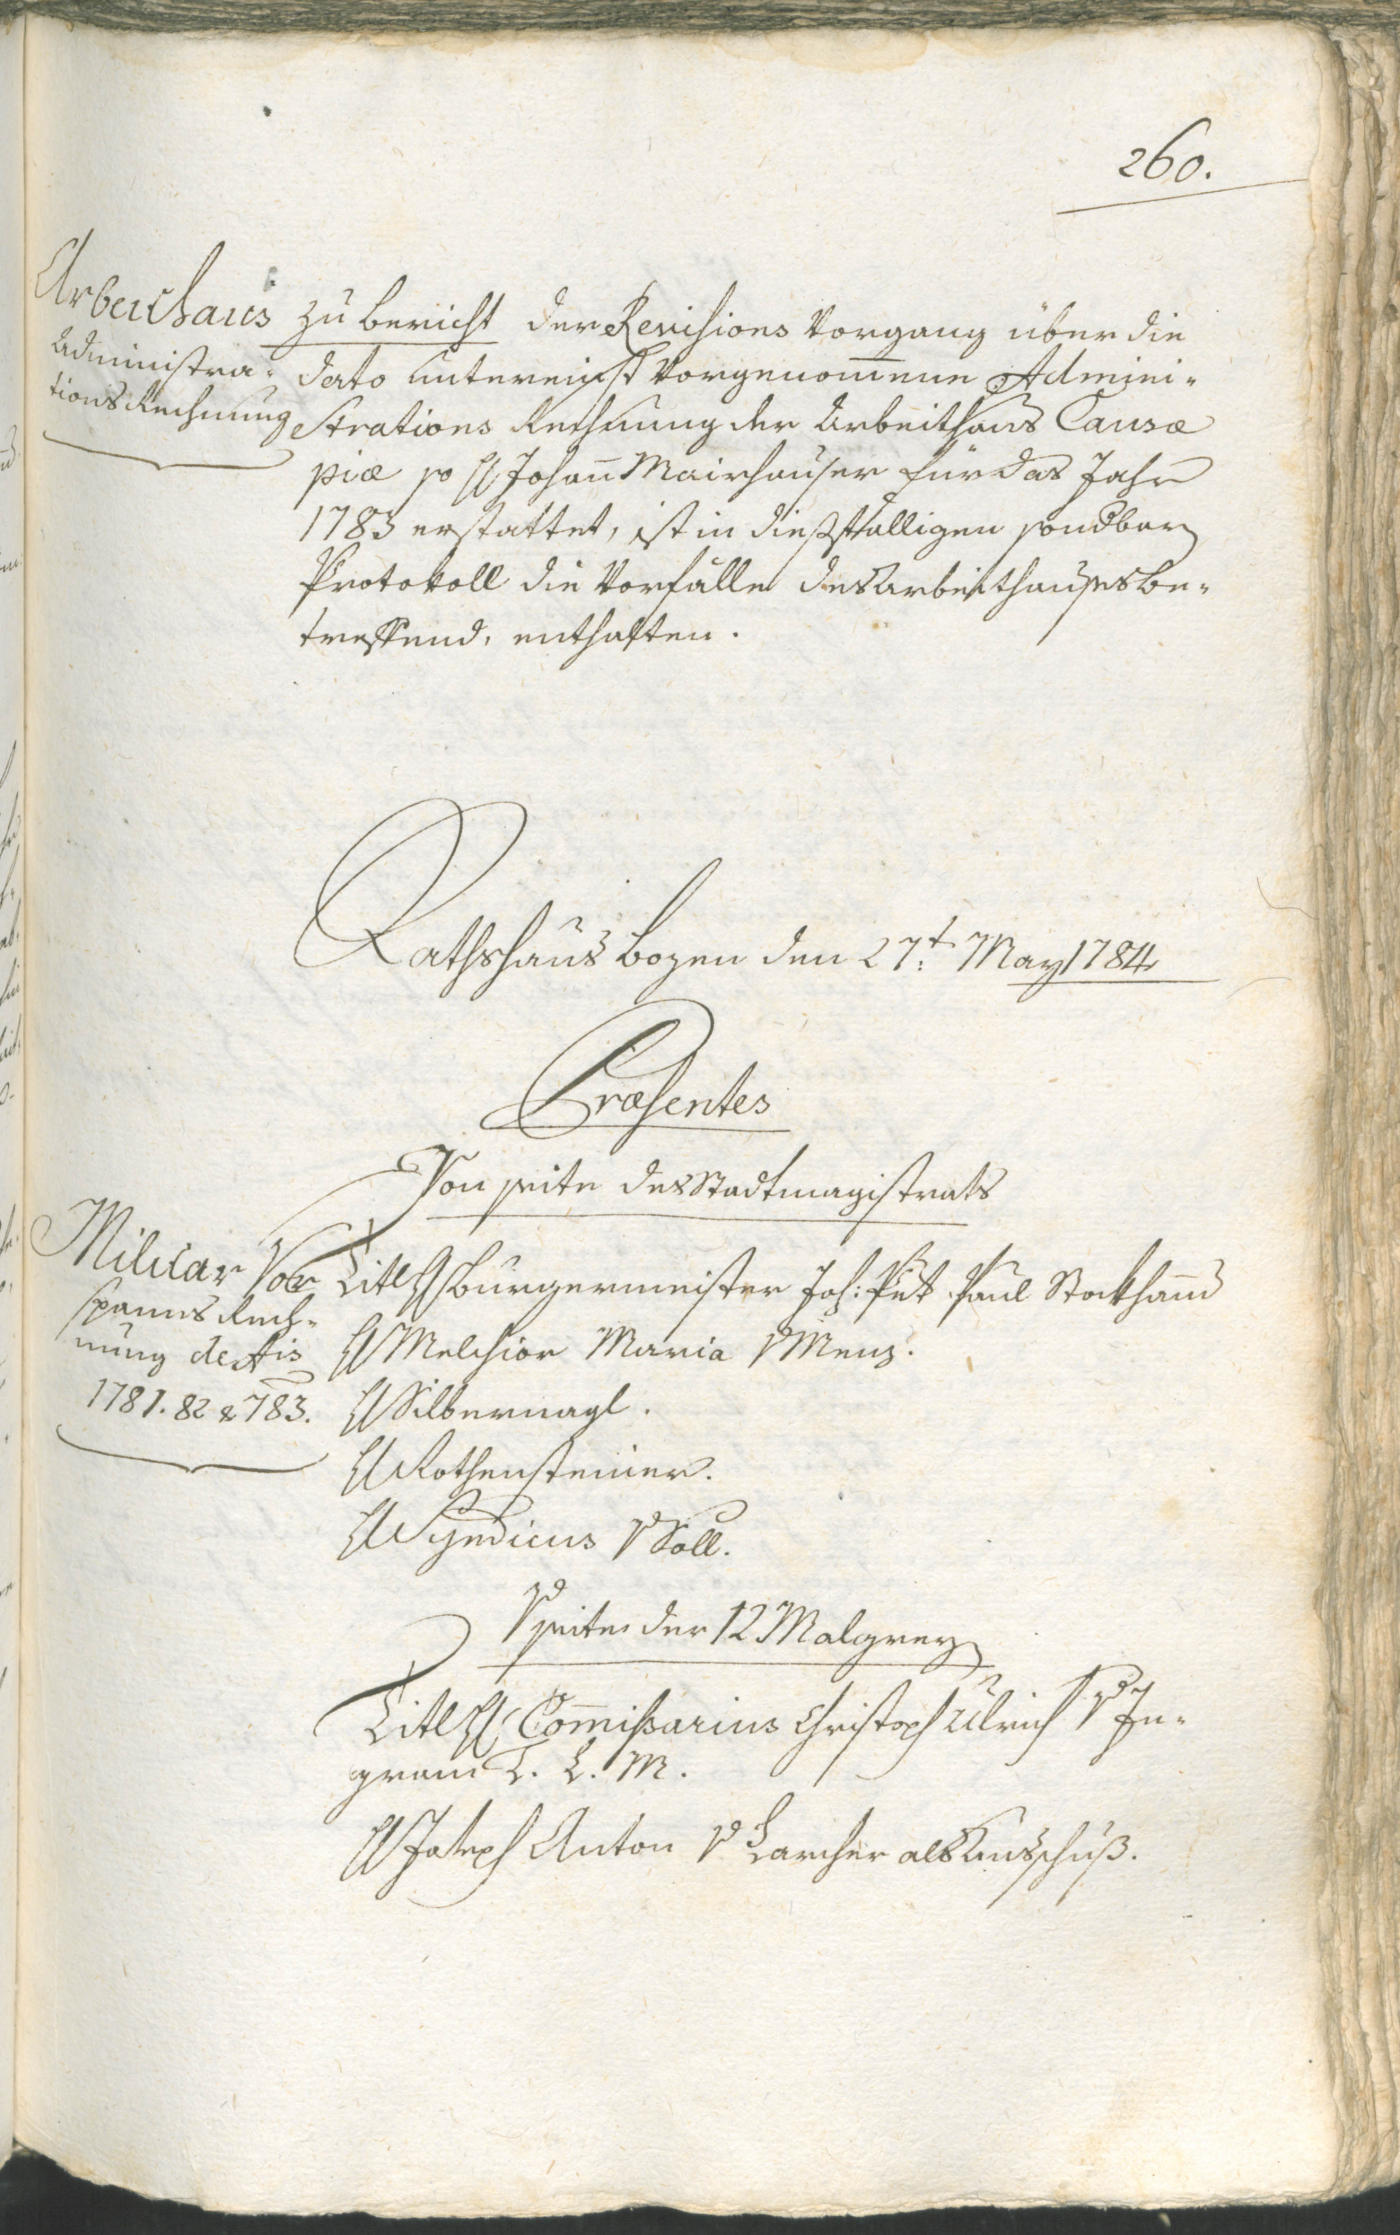 260.
Arbeithaus
Administra-
tions Rechnung
Zu bericht der Revisions Vorgang über die
dato untereinst Vorgenom̄ene Admini-
strations Rechnung der Arbeithaus Causæ
piæ so H Johan̄ Mairhauser für das Jahr
1783 erstattet, ist in dießfälligen sondbar
Protokoll die Vorfälle des Arbeithauses be-
treffend, enthalten.
Rathshaus bozen den 27.t May 1784
Præsentes
Von seite des Stadtmagistrats
Militar Vor
spanns Rech-
nung de Ais
1781. 82 & 783.
Titl H Burgermeister Joh: Pet. Paul Stockham̄
H Melchior Maria v Menz.
H Silbernagl.
H Rothensteiner.
H Syndicus v Söll.
V seite der 12 Malgrey
Titl H Com̄ißarius Christoph Ulrich v In-
gram T. L. M.
H Joseph Anton v Larcher als Ausschuß.